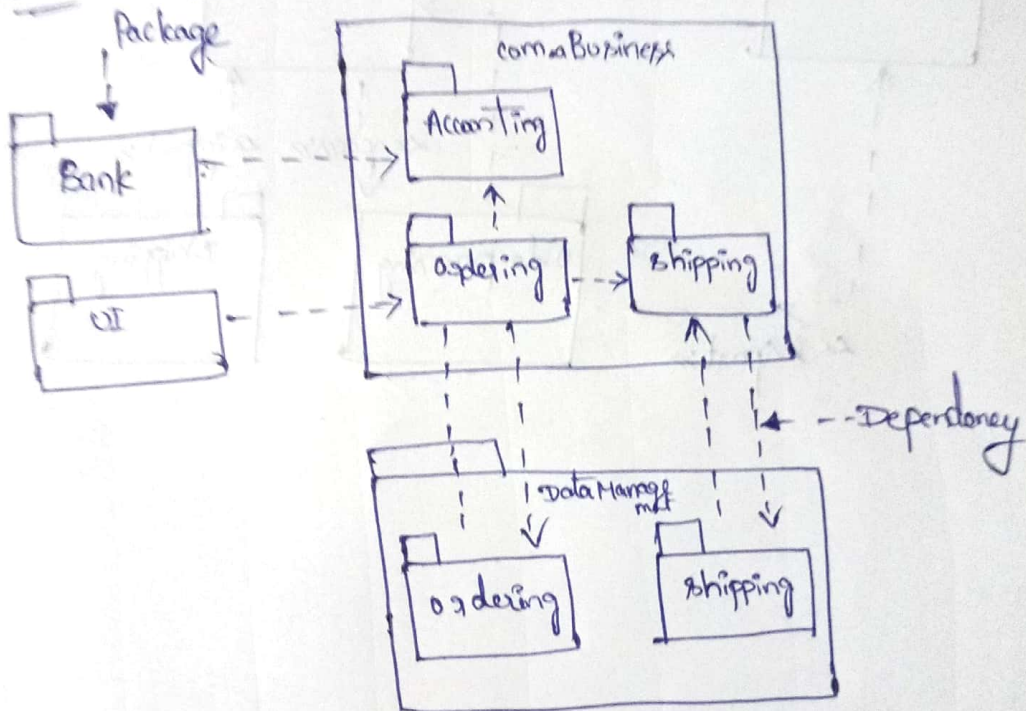 Package
com.aBusiness
Accounting
Bank
ordering
shipping
UI
Dependoney
Data Manage
mnt
ordering
shipping